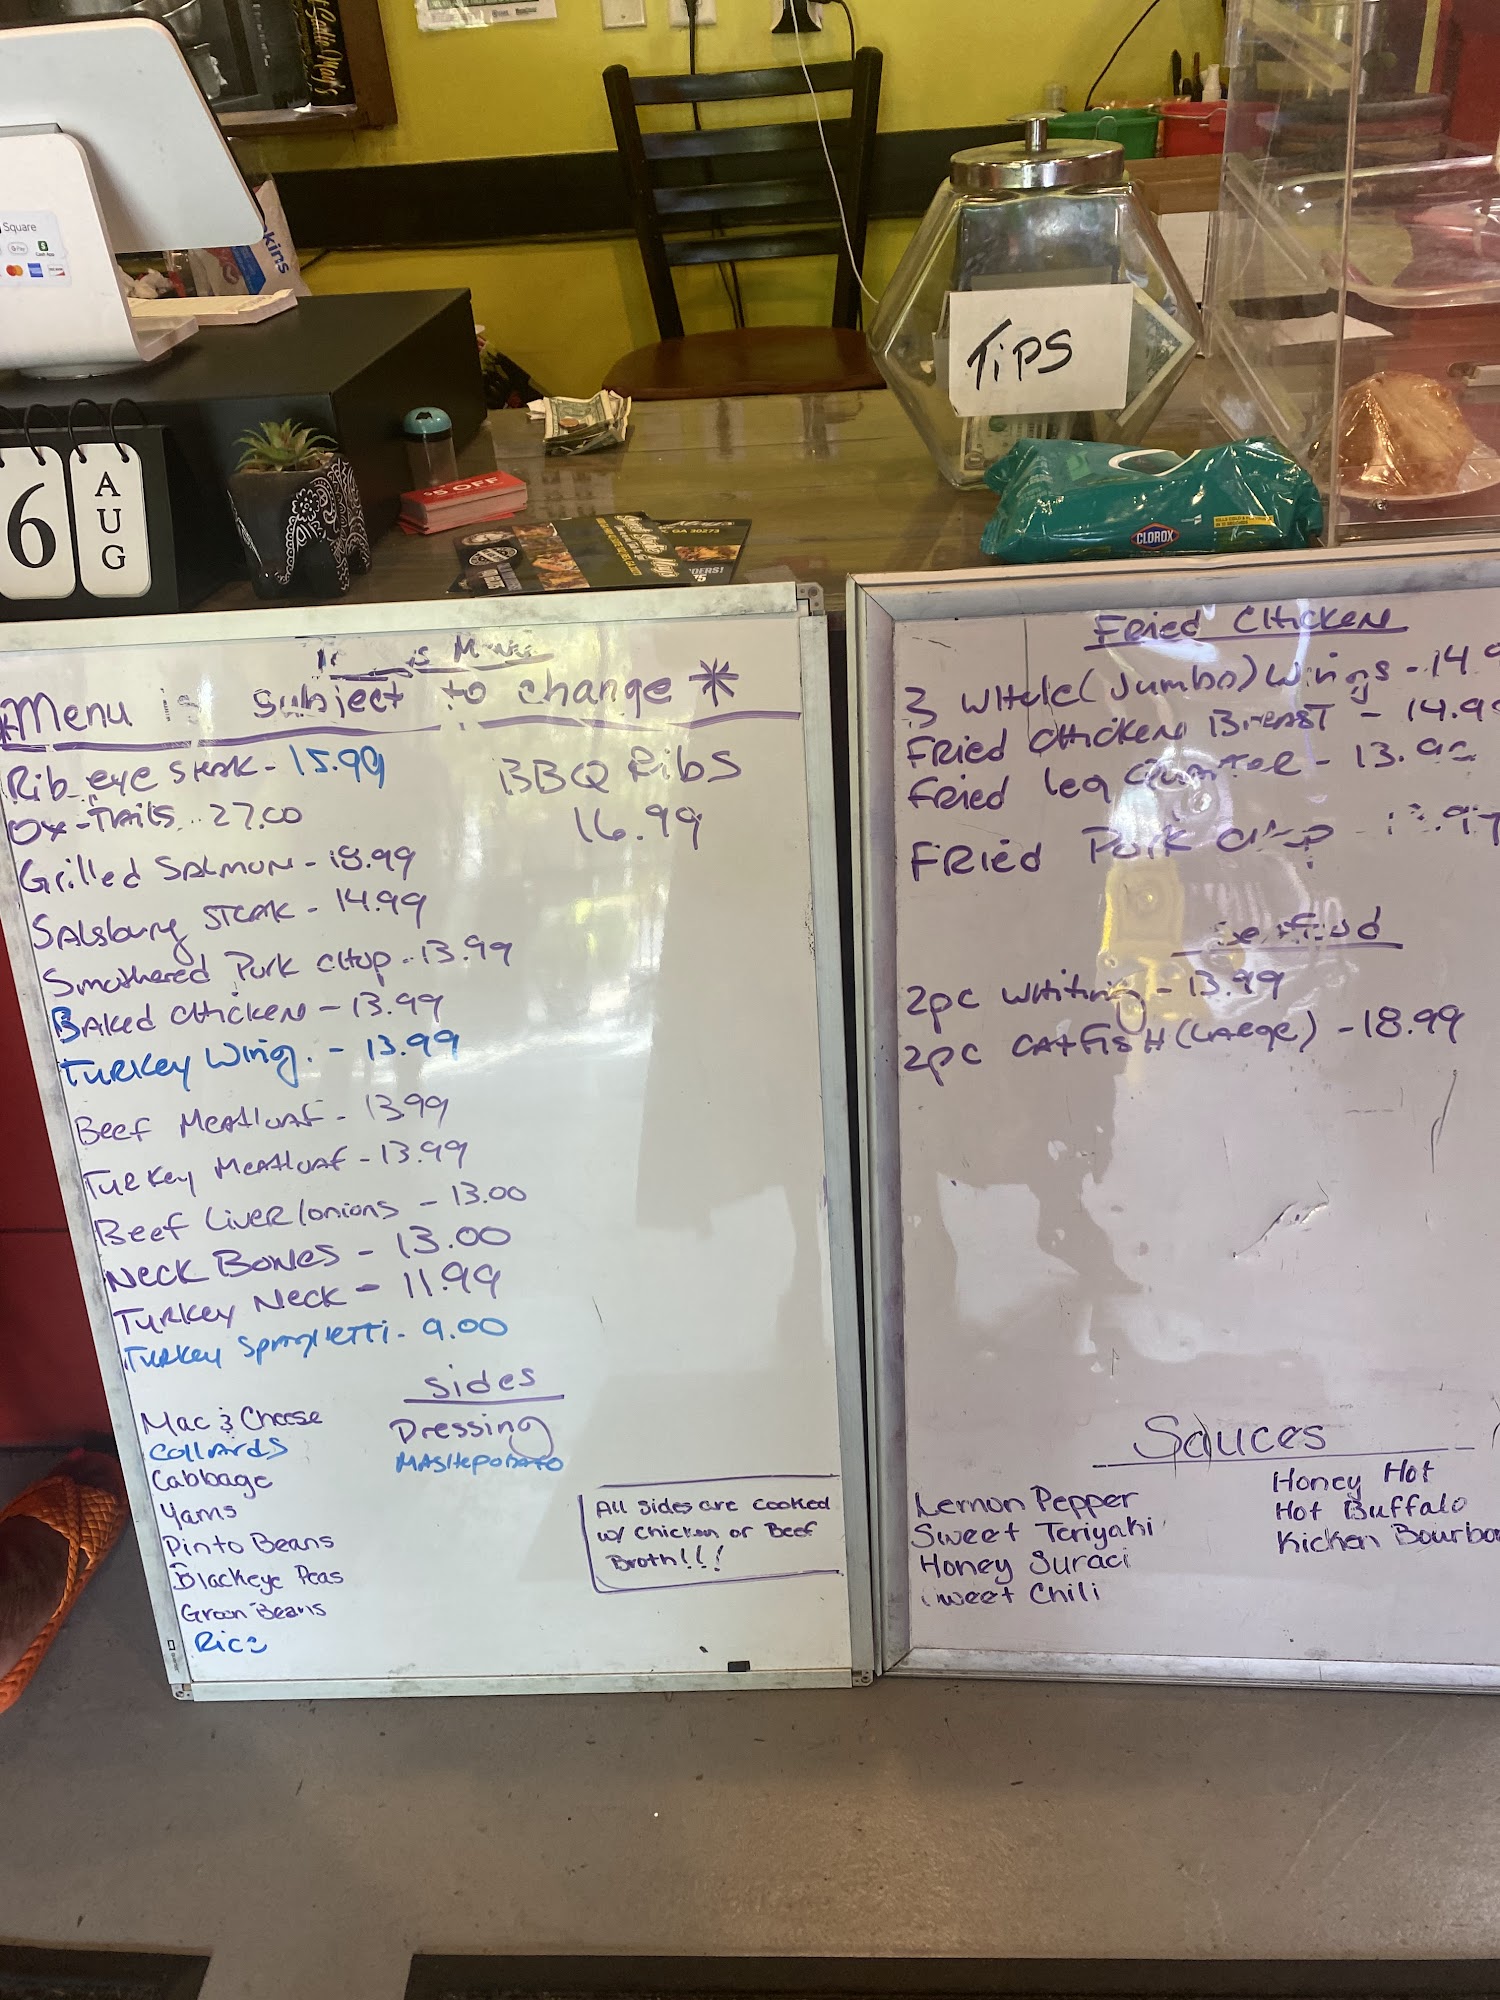 Square
Pay
Cash App
kins
6
AUG
$5 OFF
GA 30273
TiPS
CLOROX
Menu
*Menu is subject to change *
Rib eye Steak - 15.99
Ox-Tails.. 27.00
Grilled Salmon - 18.99
Salsbury Steak - 14.99
Smothered Pork Chop - 13.99
Baked Chicken - 13.99
Turkey Wing. - 13.99
Beef Meatloaf - 13.99
Turkey Meatloaf - 13.99
Beef Liver/onions - 13.00
Neck Bones - 13.00
Turkey Neck - 11.99
Turkey Spaghetti - 9.00
BBQ Ribs
16.99
Sides
Mac & Cheese
Collards
Cabbage
Yams
Pinto Beans
Blackeye Peas
Green Beans
Rice
Dressing
Mashepotato
All sides are cooked
w/ Chicken or Beef
Broth!!!
Fried Chicken
3 Whole (Jumbo) Wings - 14.9
Fried Chicken Breast - 14.99
Fried Leg Quarter - 13.99
Fried Pork Chop
Seafood
2pc Whiting - 13.99
2pc Catfish (Large) - 18.99
Sauces
Lemon Pepper
Sweet Teriyaki
Honey Suraci
Sweet Chili
Honey Hot
Hot Buffalo
Kicken Bourbo